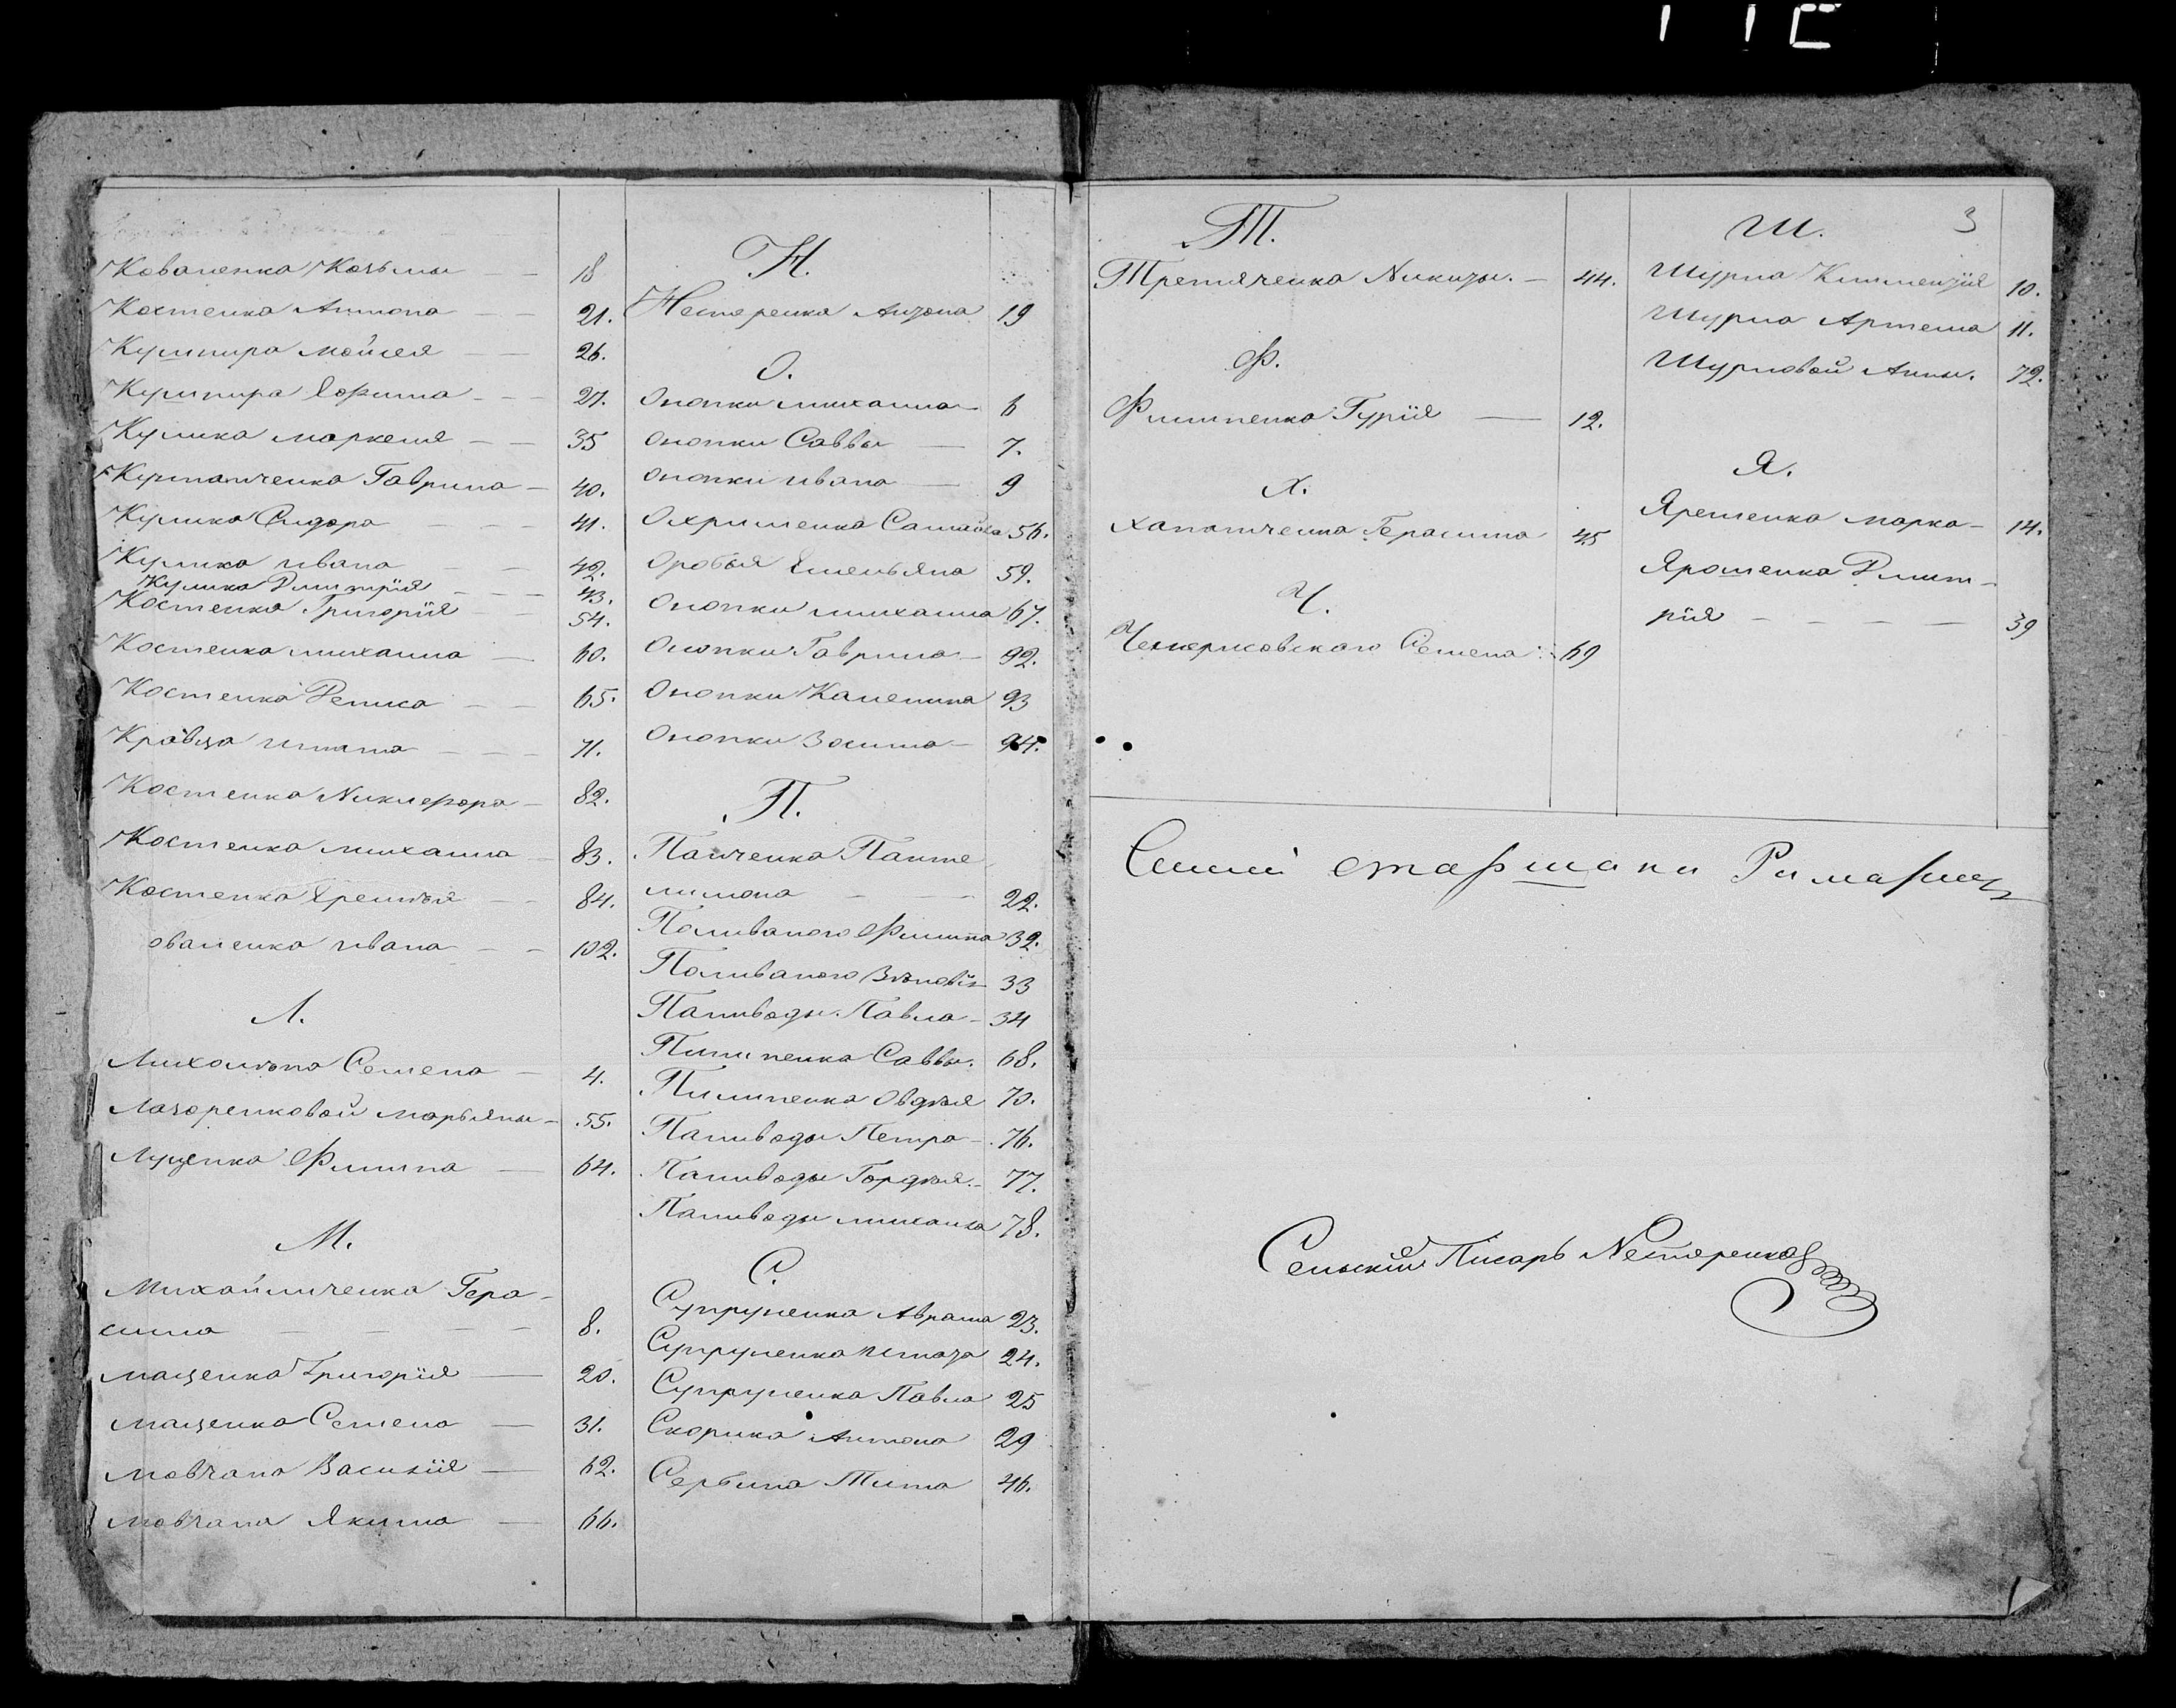 Коваленка Козьмы — 18
Костенка Антона — 21.
Кушнира Мойсея — 26.
Кушнира Ефима — 27.
Кулика Маркела — 35
Гаврила — 40.
Кулика Сидора — 41.
Кулика Ивана — 42.
Кулика Дмитрія — 43.
Костенка Григорія — 54.
Костенка Михаила — 60.
Костенка Дениса — 65.
Кравца Игната — 71.
Костенка Никифора — 82.
Костенка Михаила — 83.
Костенка Еремѣя — 84.
оваленка Ивана — 102.
Л.
Семена — 4.
Лазоренковой Марьяны — 55.
Луценка Филипа — 64.
М.
Михайличенка Гера-
сима — 8.
Маценка Григорія — 20.
Маценка Семена — 31.
Мовчана Василія — 62.
Мовчана Якима — 66.
Н.
Нестеренка Антона 19
О.
Онопки Михаила 6
Онопки Саввы — 7.
Онопки Ивана — 9
Охрименка Самойла 56.
Оробья Емельяна 59.
Онопки Михаила 67.
Онопки Гаврила — 92.
Онопки Каленика 93
Онопки Зосима — 94.
П.
Панченка Панте
лимона — 22.
Поливаного Филипа 32.
Поливаного Зѣновія 33
Паливоды Павла — 34
Пилипенка Саввы. 68.
Пилипенка Овдѣя 70.
Паливоды Петра — 76.
Паливоды Гордѣя. — 77.
Паливоды Михаила 78.
С.
Супруненка Аврама 23.
Супруненка Игната 24.
Супруненка Павла 25
Скорика Антона 29
Сербина Тита 46.
3
Т.
Третяченка Никиты. — 44.
Ф.
Филипенка Гурія — 12.
Х.
Герасима 45
Ч.
Семена 69
Ш.
Шурла Климентія 10.
Шурла Артема 11.
Шурловой Анны. 72.
Я.
Яременка Марка — 14.
Ярошенка Дмит-
рія — 39
Сельскій Писарь Нестеренко